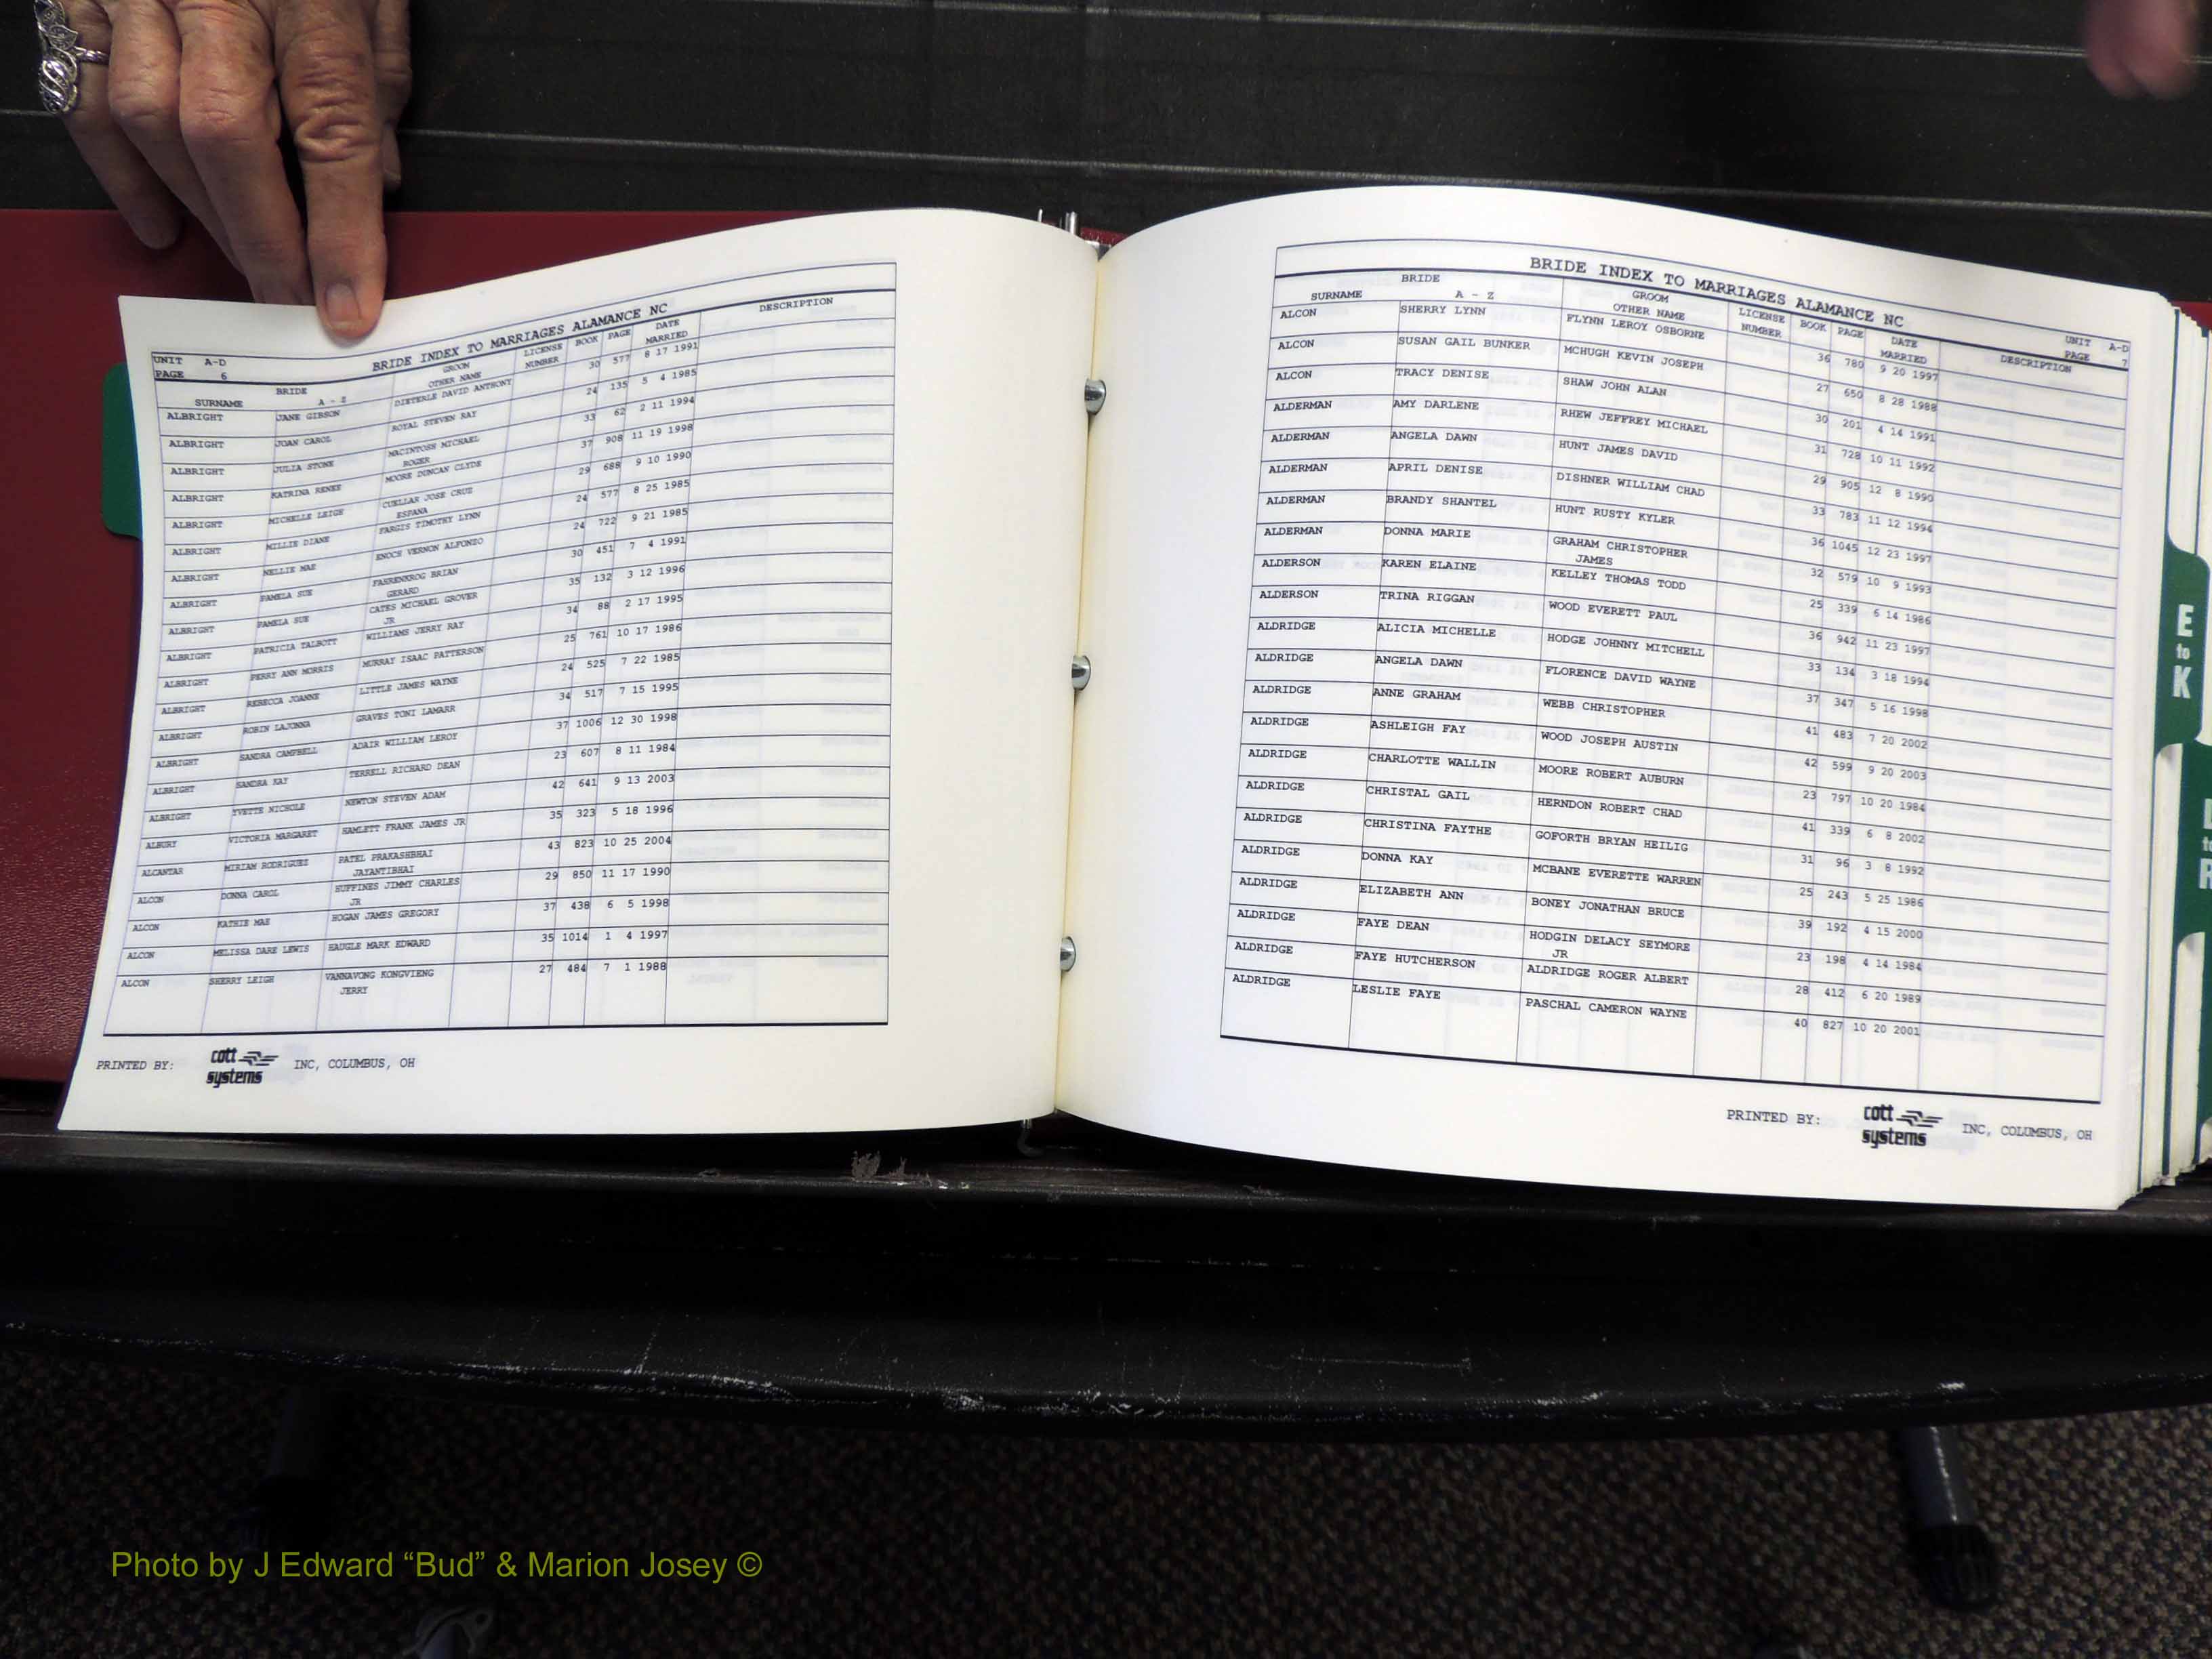 BRIDE INDEX TO MARRIAGES ALAMANCE NC
UNIT A-D
PAGE 6
BRIDE GROOM LICENSE BOOK PAGE DATE DESCRIPTION
SURNAME A - Z OTHER NAME NUMBER MARRIED
ALBRIGHT JANE GIBSON DIETERLE DAVID ANTHONY 30 577 8 17 1991
ALBRIGHT JOAN CAROL ROYAL STEVEN RAY 24 135 5 4 1985
ALBRIGHT JULIA STONE MACINTOSH MICHAEL 33 62 2 11 1994
ROGER
ALBRIGHT KATRINA RENEE MOORE DUNCAN CLYDE 37 908 11 19 1998
ALBRIGHT MICHELLE LEIGH CUELLAR JOSE CRUZ 29 688 9 10 1990
ESPANA
ALBRIGHT MILLIE DIANE FARGIS TIMOTHY LYNN 24 577 8 25 1985
ALBRIGHT NELLIE MAE ENOCH VERNON ALFONZO 24 722 9 21 1985
ALBRIGHT PAMELA SUE FAHRENKROG BRIAN 30 451 7 4 1991
GERARD
ALBRIGHT PAMELA SUE CATES MICHAEL GROVER 35 132 3 12 1996
JR
ALBRIGHT PATRICIA TALBOTT WILLIAMS JERRY RAY 34 88 2 17 1995
ALBRIGHT PERRY ANN MORRIS MURRAY ISAAC PATTERSON 25 761 10 17 1986
ALBRIGHT REBECCA JOANNE LITTLE JAMES WAYNE 24 525 7 22 1985
ALBRIGHT ROBIN LAJONNA GRAVES TONI LAMARR 34 517 7 15 1995
ALBRIGHT SANDRA CAMPBELL ADAIR WILLIAM LEROY 37 1006 12 30 1998
ALBRIGHT SANDRA KAY TERRELL RICHARD DEAN 23 607 8 11 1984
ALBRIGHT YVETTE NICHOLE NEWTON STEVEN ADAM 42 641 9 13 2003
ALBURY VICTORIA MARGARET HAMLETT FRANK JAMES JR 35 323 5 18 1996
ALCANTAR MIRIAM RODRIGUEZ PATEL PRAKASHBHAI 43 823 10 25 2004
JAYANTIBHAI
ALCON DONNA CAROL HUFFINES JIMMY CHARLES 29 850 11 17 1990
JR
ALCON KATHIE MAE HOGAN JAMES GREGORY 37 438 6 5 1998
ALCON MELISSA DARE LEWIS HAUGLE MARK EDWARD 35 1014 1 4 1997
ALCON SHERRY LEIGH VANNAVONG KONGVIENG 27 484 7 1 1988
JERRY
PRINTED BY: cott systems INC, COLUMBUS, OH
BRIDE INDEX TO MARRIAGES ALAMANCE NC
UNIT A-D
PAGE 7
BRIDE GROOM LICENSE BOOK PAGE DATE DESCRIPTION
SURNAME A - Z OTHER NAME NUMBER MARRIED
ALCON SHERRY LYNN FLYNN LEROY OSBORNE 36 780 9 20 1997
ALCON SUSAN GAIL BUNKER MCHUGH KEVIN JOSEPH 27 650 8 28 1988
ALCON TRACY DENISE SHAW JOHN ALAN 30 201 4 14 1991
ALDERMAN AMY DARLENE RHEW JEFFREY MICHAEL 31 728 10 11 1992
ALDERMAN ANGELA DAWN HUNT JAMES DAVID 29 905 12 8 1990
ALDERMAN APRIL DENISE DISHNER WILLIAM CHAD 33 783 11 12 1994
ALDERMAN BRANDY SHANTEL HUNT RUSTY KYLER 36 1045 12 23 1997
ALDERMAN DONNA MARIE GRAHAM CHRISTOPHER 32 579 10 9 1993
JAMES
ALDERSON KAREN ELAINE KELLEY THOMAS TODD 25 339 6 14 1986
ALDERSON TRINA RIGGAN WOOD EVERETT PAUL 36 942 11 23 1997
ALDRIDGE ALICIA MICHELLE HODGE JOHNNY MITCHELL 33 134 3 18 1994
ALDRIDGE ANGELA DAWN FLORENCE DAVID WAYNE 37 347 5 16 1998
ALDRIDGE ANNE GRAHAM WEBB CHRISTOPHER 41 483 7 20 2002
ALDRIDGE ASHLEIGH FAY WOOD JOSEPH AUSTIN 42 599 9 20 2003
ALDRIDGE CHARLOTTE WALLIN MOORE ROBERT AUBURN 23 797 10 20 1984
ALDRIDGE CHRISTAL GAIL HERNDON ROBERT CHAD 41 339 6 8 2002
ALDRIDGE CHRISTINA FAYTHE GOFORTH BRYAN HEILIG 31 96 3 8 1992
ALDRIDGE DONNA KAY MCBANE EVERETTE WARREN 25 243 5 25 1986
ALDRIDGE ELIZABETH ANN BONEY JONATHAN BRUCE 39 192 4 15 2000
ALDRIDGE FAYE DEAN HODGIN DELACY SEYMORE 23 198 4 14 1984
JR
ALDRIDGE FAYE HUTCHERSON ALDRIDGE ROGER ALBERT 28 412 6 20 1989
ALDRIDGE LESLIE FAYE PASCHAL CAMERON WAYNE 40 827 10 20 2001
PRINTED BY: cott systems INC, COLUMBUS, OH
E
to
K
Photo by J Edward “Bud” & Marion Josey ©